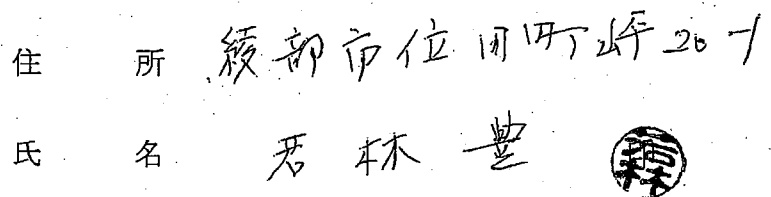 住所 綾部市位田町岼20-1
氏名 若林 豊